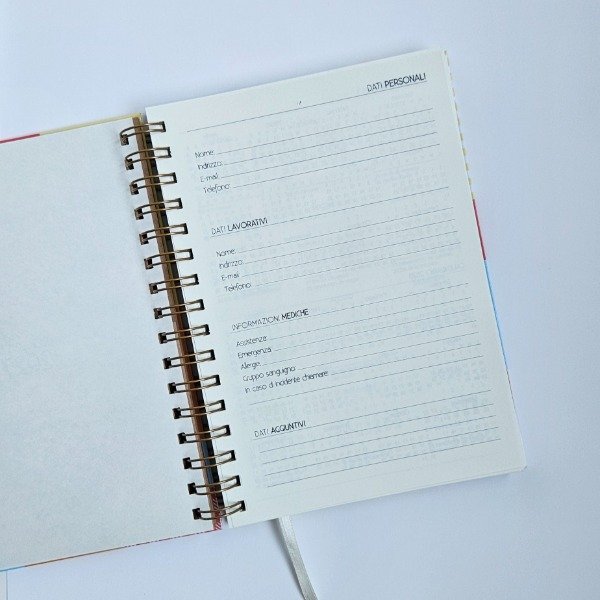 DATI PERSONALI
Nome:
Indirizzo:
E-mail:
Telefono:
DATI LAVORATIVI
Nome:
Indirizzo:
E-mail:
Telefono:
INFORMAZIONI MEDICHE
Assistenza:
Emergenza:
Allergie:
Gruppo sanguigno:
In caso di incidente chiamare:
DATI AGGIUNTIVI